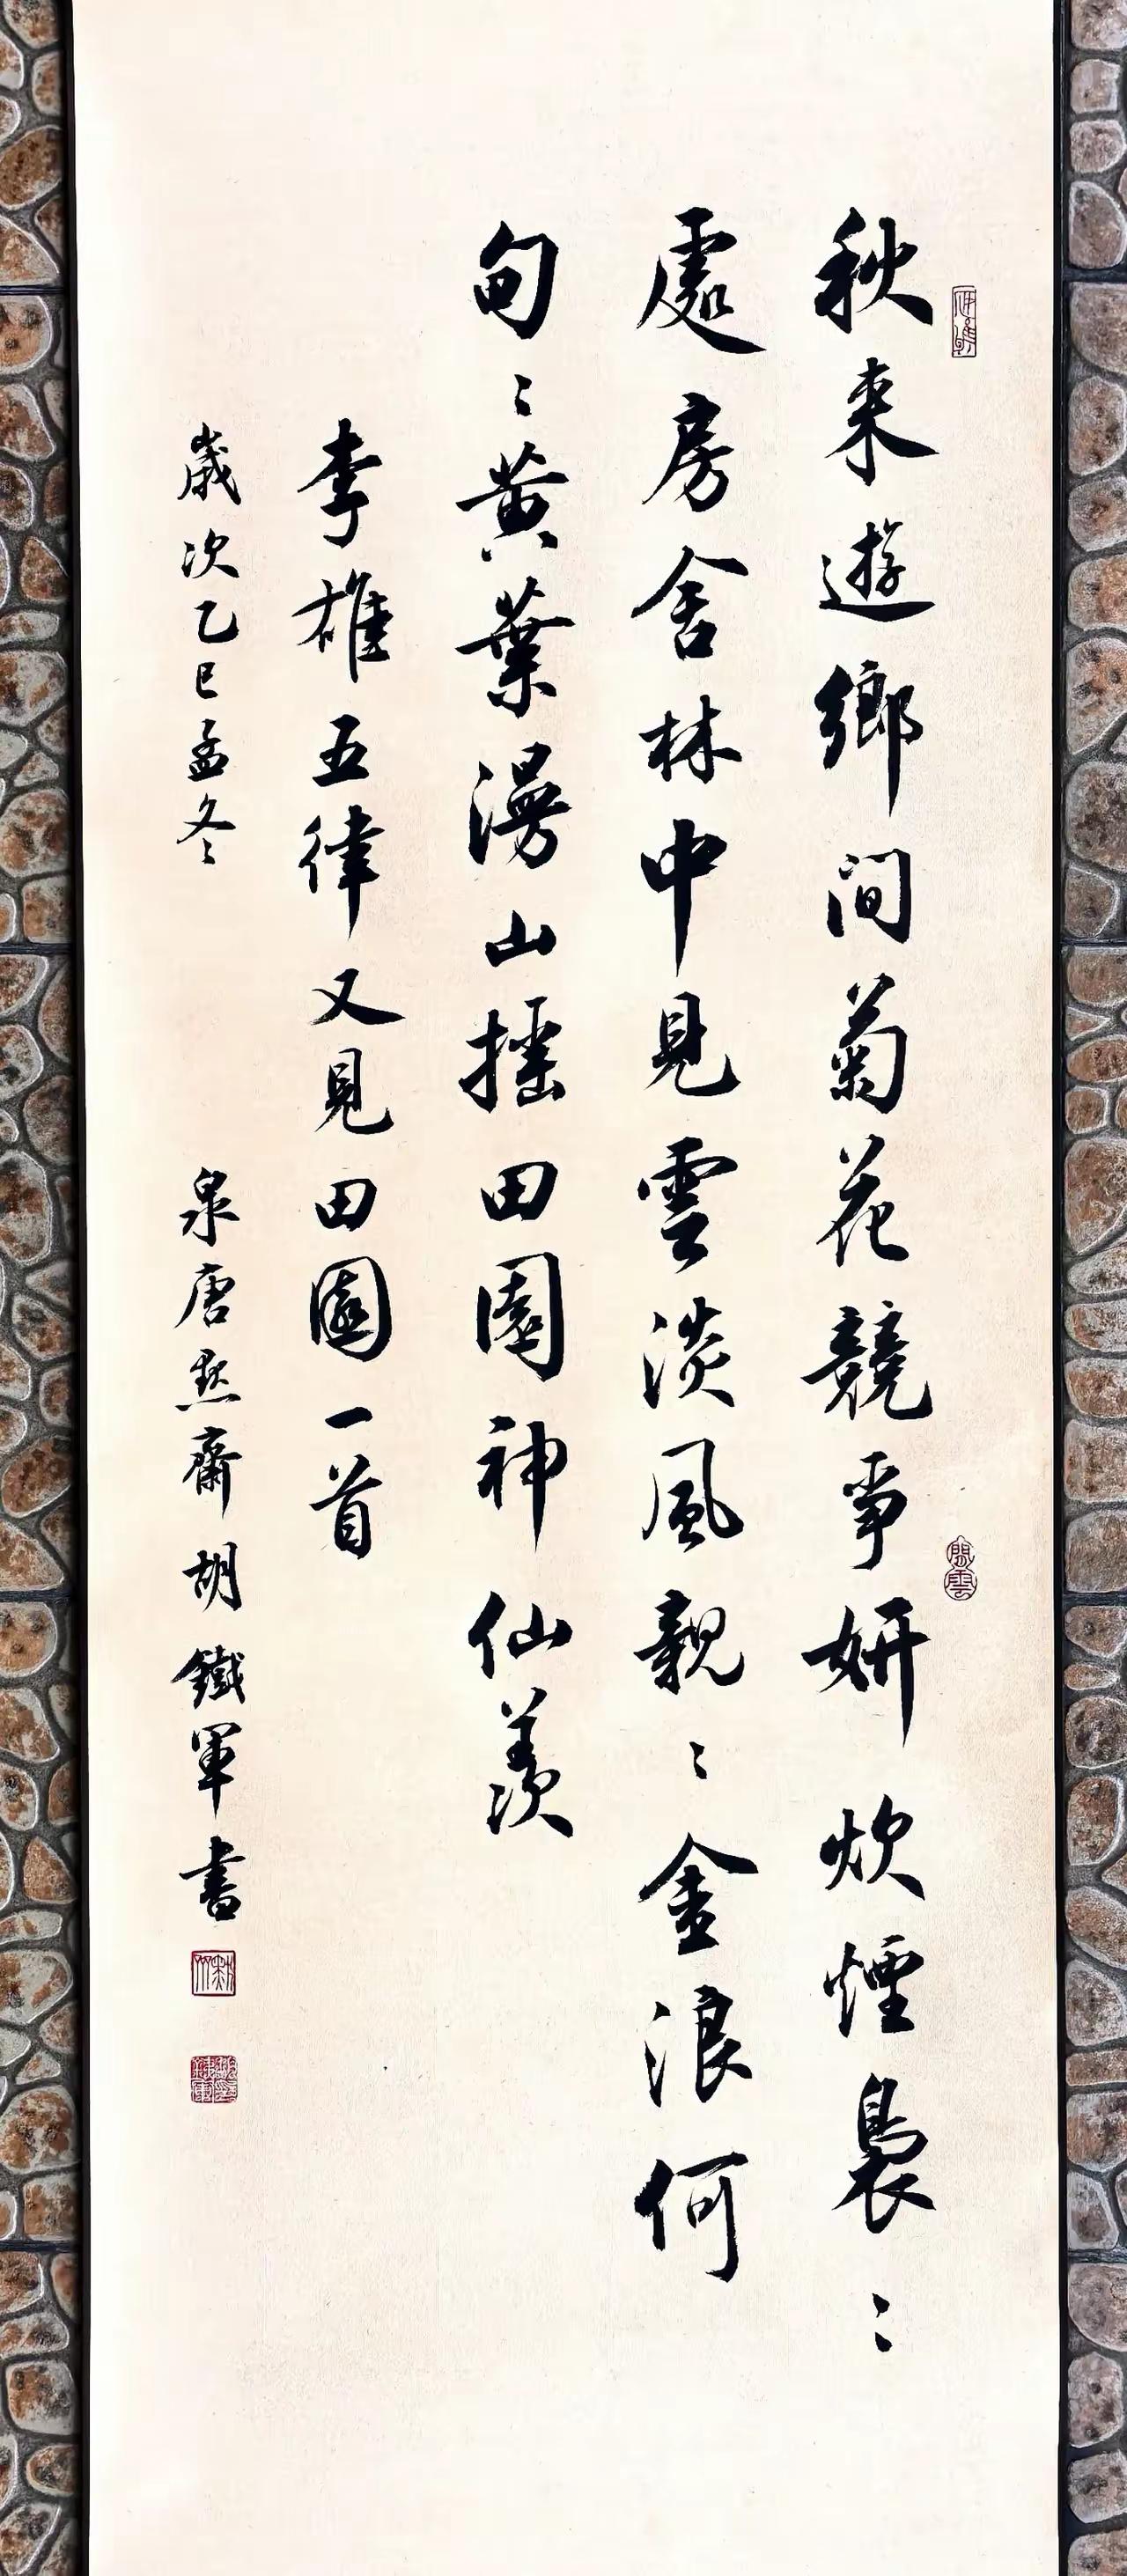 秋来遊鄉间菊花競爭妍炊煙裊〻
處房舍林中見雲淡風親〻金浪何
甸〻黄葉漫山摇田園神仙羡
李雄五律又見田園一首
歲次乙巳孟冬 泉唐點齋胡鐵軍書
閒雲